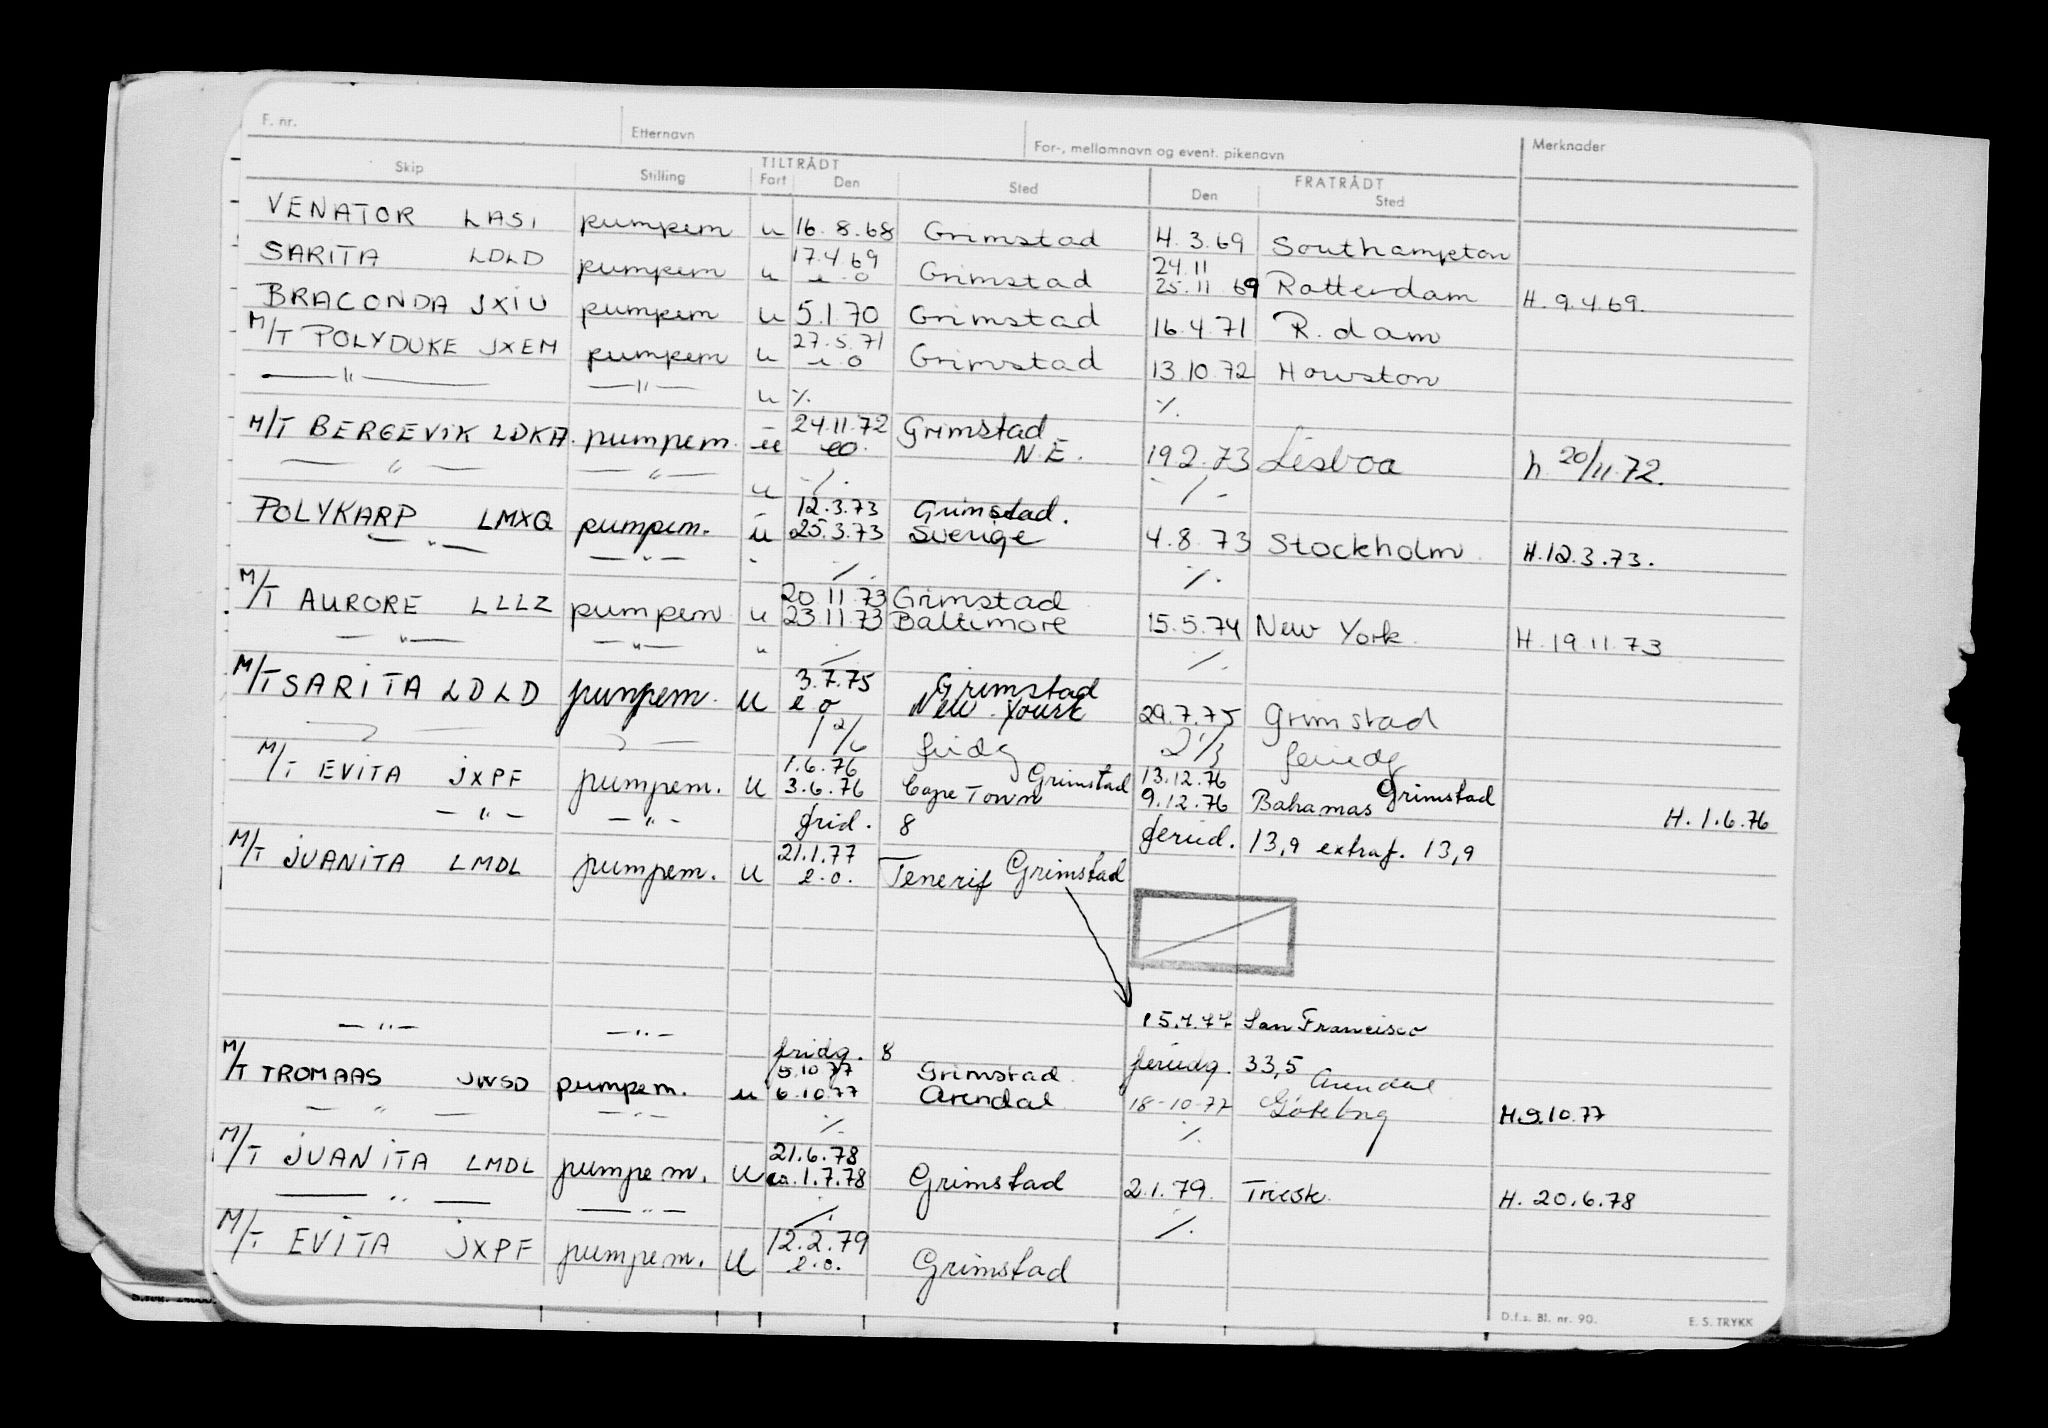 F. nr. Etternavn For-, mellomnavn og event. pikenavn Merknader
TILTRÅDT FRATRÅDT
Skip Stilling Fart Den Sted Den Sted
VENATOR LASI pumpem u 16.8.68 Grimstad 4.3.69 Southampton
17.4.69 24.11
SARITA LDLD pumpem u e.o Grimstad 25.11 69 Rotterdam H. 9.4.69.
BRACONDA JXIU pumpem u 5.1.70 Grimstad 16.4.71 R.dam
27.5.71
M/T POLYDUKE JXEM pumpem u e.o Grimstad 13.10.72 Houston
—"— —"— u %. %.
24.11.72 Grimstad
M/T BERGEVIK LDKA. pumpem. u eo. N.E. 19.2.73 Lisboa h. 20/11.72.
—"— —"— u -/. -/-
12.3.73 Grimstad.
POLYKARP LMXQ pumpem. u 25.3.73 Sverige 4.8.73 Stockholm. H.12.3.73.
—"— —"— " ./. %.
20.11.73 Grimstad
M/T AURORE LLLZ pumpem u 23.11.73 Baltimore 15.5.74 New York. H. 19.11.73
—"— —"— " ./. %.
3.7.75 Grimstad
M/T SARITA LDLD pumpem. u e o New Yourk 29.7.75 Grimstad
fridg feriedg
1.6.76 Grimstad 13.12.76 Grimstad
M/T EVITA JXPF pumpem. u 3.6.76 Cape Town 9.12.76 Bahamas H. 1.6.76
—"— —"— frid. 8 feried. 13,9 extraf. 13,9
21.1.77 Grimstad
M/T JUANITA LMDL pumpem. u e.o. Tenerif
—"— —"— 15.7.77 San Francisco
fridg. 8 feriedg. 33,5
5.10.77 Grimstad Arendal
M/T TROMAAS JWSD pumpem. u 6.10.77 Arendal 18-10-77 Gøtebrg H.5.10.77
—"— —"— %. %.
21.6.78
M/T JUANITA LMDL pumpem. u ca.1.7.78 Grimstad 2.1.79. Triest. H. 20.6.78
—"— —"— ./. %.
12.2.79
M/T EVITA JXPF pumpem. u e.o. Grimstad
D.f.s. Bl. nr. 90. E. S. TRYKK